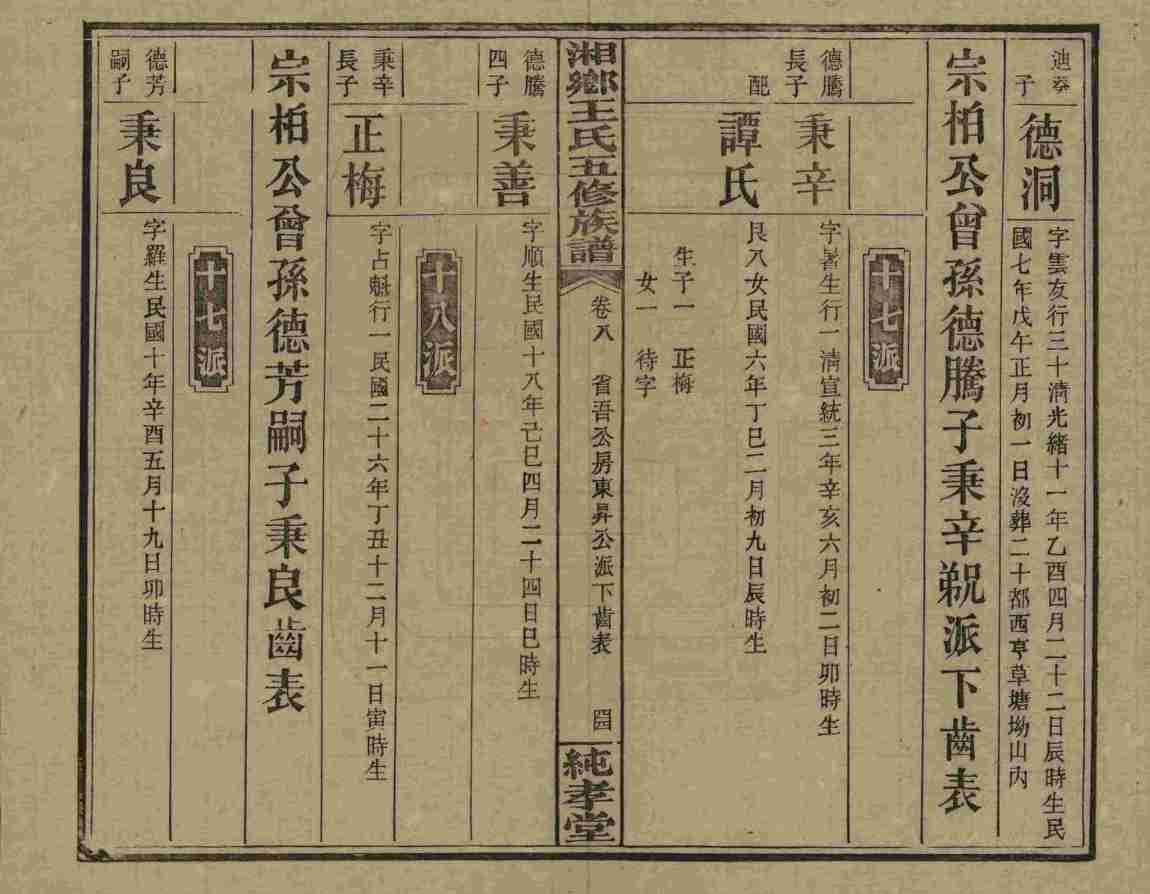 迪奏
子
德洞
字雲友行三十清光緒十一年乙酉四月二十二日辰時生民
國七年戊午正月初一日沒葬二十都西亨草塘坳山內
宗柏公曾孫德騰子秉辛親派下齒表
十七派
德騰
長子
秉辛
字暑生行一清宣統三年辛亥六月初二日卯時生
配
譚氏
艮八女民國六年丁巳二月初九日辰時生
生子一 正梅
女一 待字
湘鄉王氏五修族譜
卷八 省吾公房東昇公派下齒表
純孝堂
德騰
四子
秉善
字順生民國十八年己巳四月二十四日巳時生
十八派
秉辛
長子
正梅
字占魁行一民國二十六年丁丑十二月十一日寅時生
宗柏公曾孫德芳嗣子秉良齒表
十七派
德芳
嗣子
秉良
字羅生民國十年辛酉五月十九日卯時生